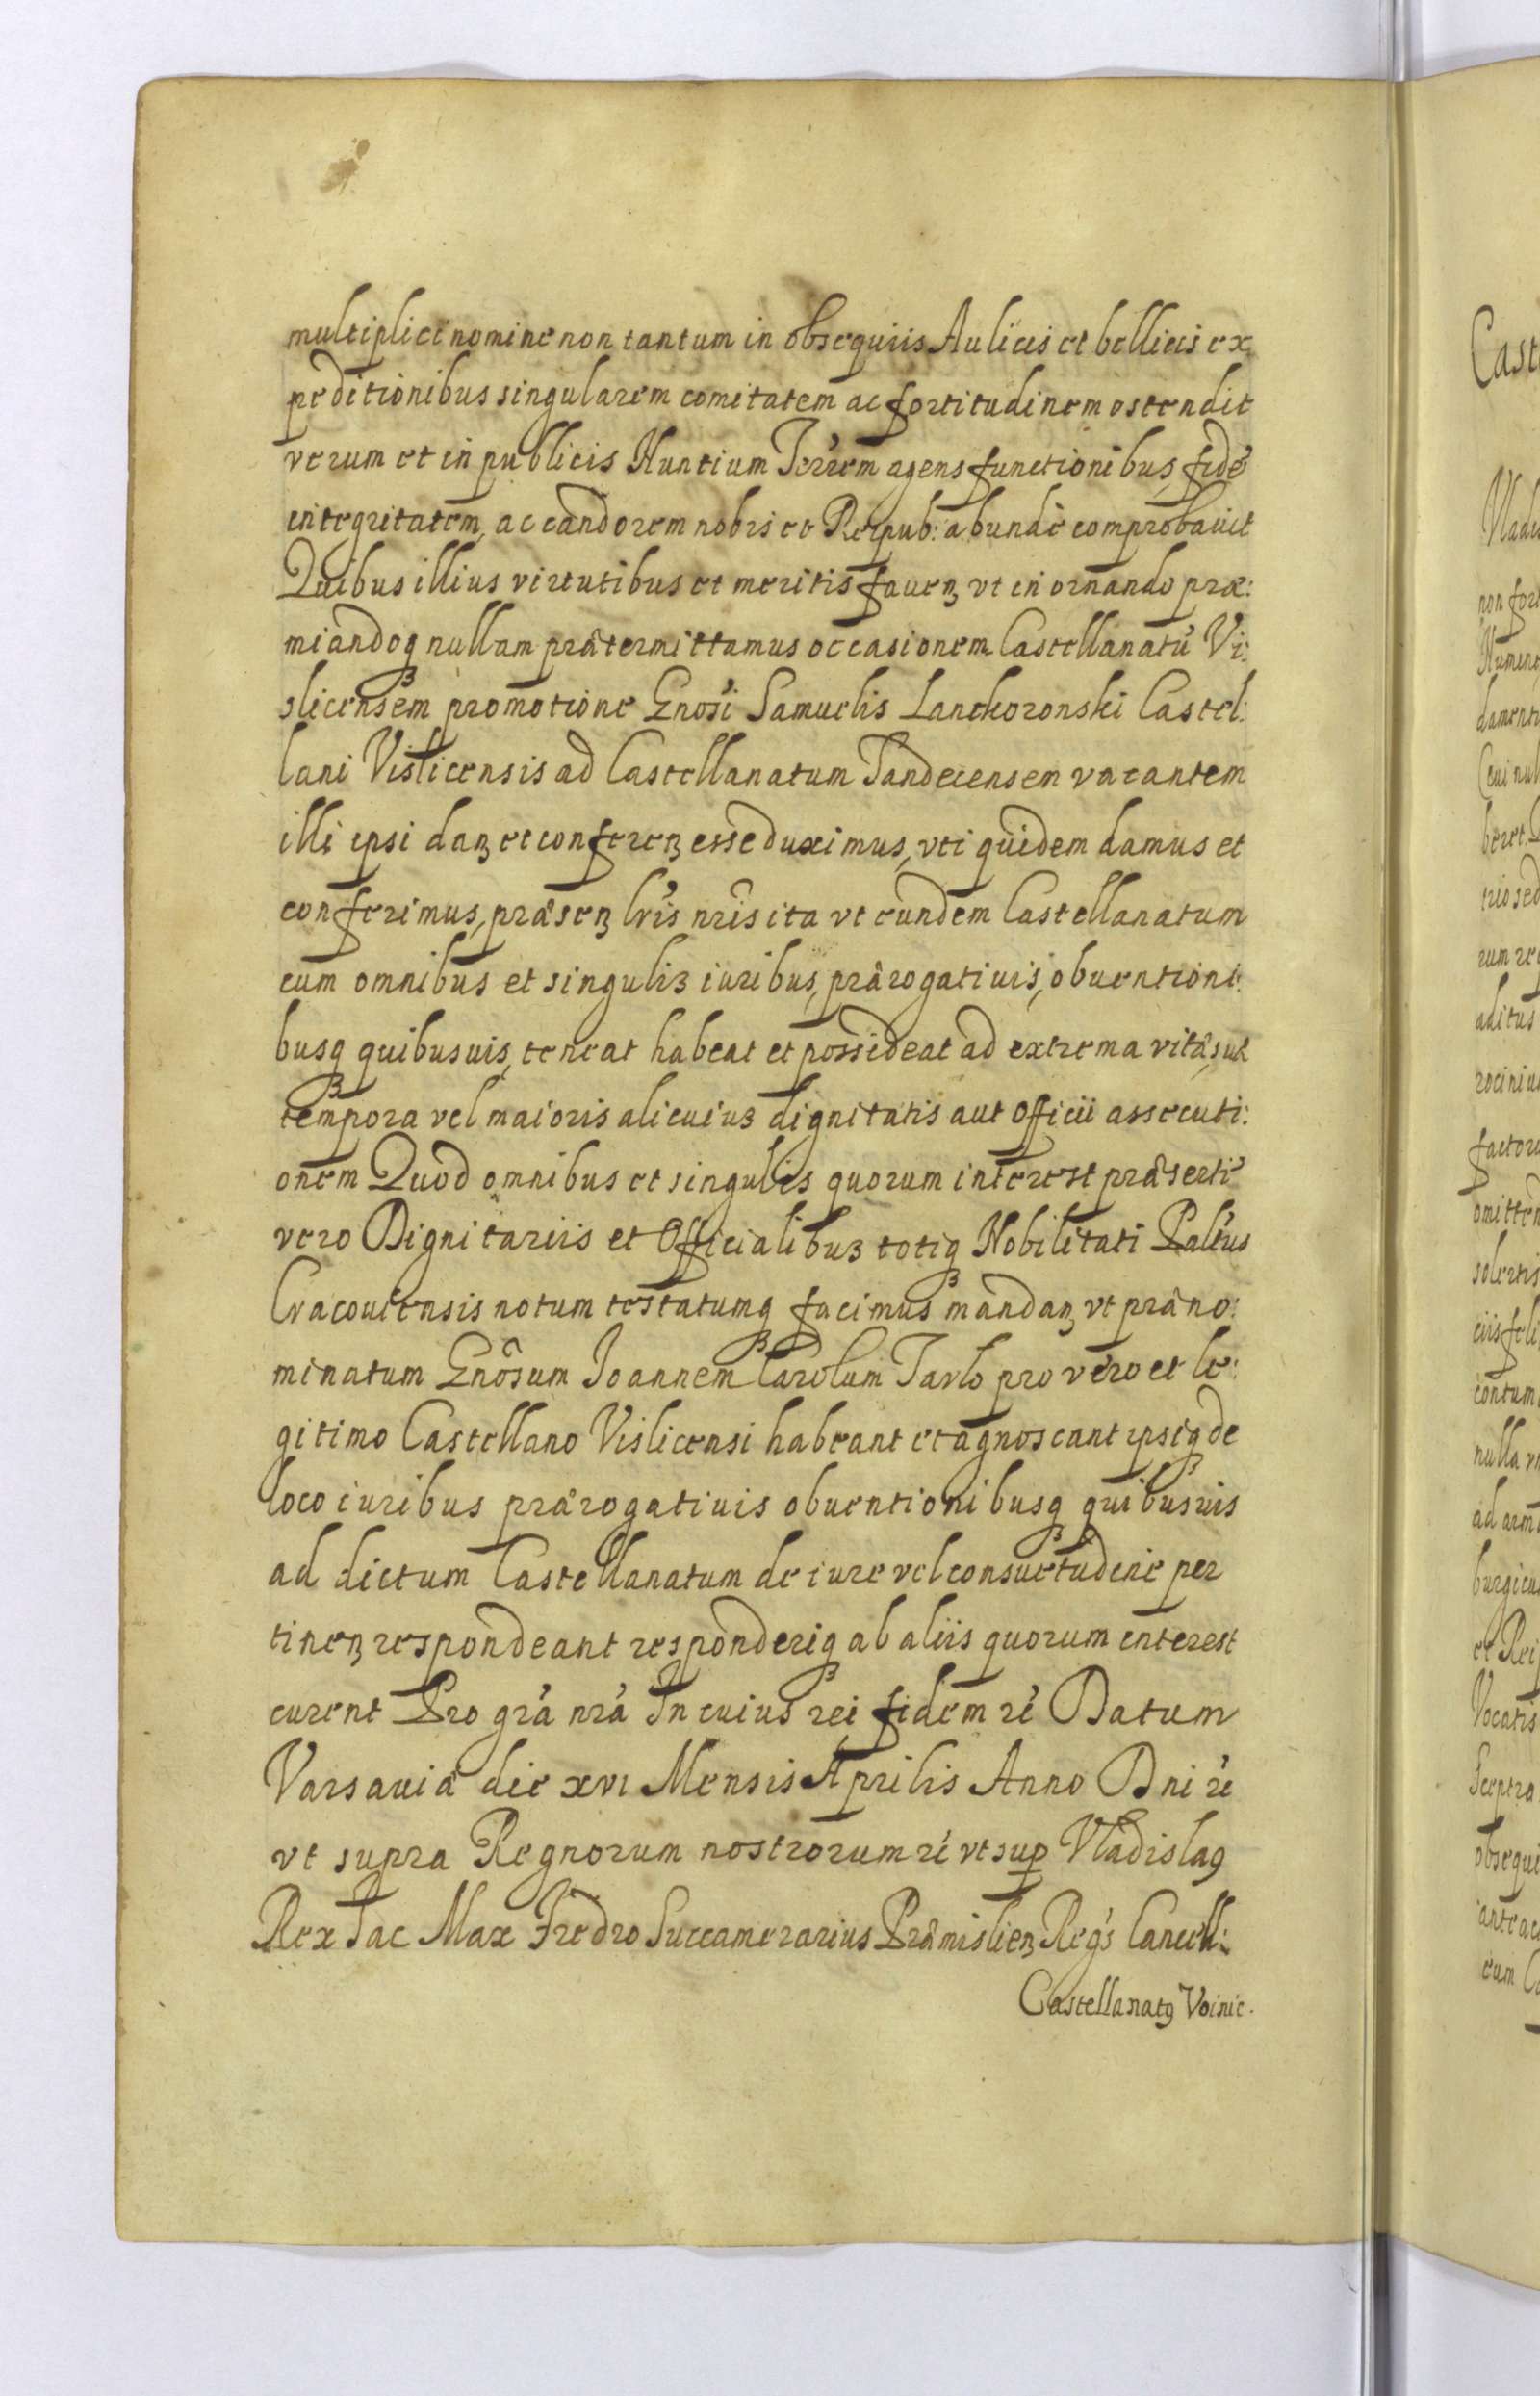 multiplici nomine non tantum in obsequiis Aulicis et bellicis ex
peditionibus singularem comitatem ac fortitudinem ostendit
verum et in publicis Nuntium Terrem agens functionibus, fidẽ
integritatem, ac candorem nobis et Reipub: abundè comprobauit
Quibus illius virtutibus et meritis fauenꝫ vt in ornando præ:
miandoqꝫ nullam prætermittamus occasionem Castellanatũ Vi:
slicensem promotione Gnosi Samuelis Lanckoronski Castel:
lani Vislicensis ad Castellanatum Sandecensem vacantem
illi ipsi danꝫ et conferenꝫ esse duximus, vti quidem damus et
conferimus, præsenꝫ lris nris ita vt eundem Castellanatum
cum omnibus et singulis iuribus, prærogatiuis, obuentioni:
busqꝫ quibusuis, teneat habeat et possideat ad extrema vitæ suæ
tempora vel maioris alicuius dignitatis aut Officii assecuti:
onem Quod omnibus et singulis quorum interest præsertĩ
vero Dignitariis et Officialibus totiqꝫ Nobilitati Paltus
Cracouiensis notum testatumqꝫ facimus mandanꝫ vt præno:
minatum Gnosum Ioannem Carolum Tarlo pro vero et le:
gitimo Castellano Vislicensi habeant et agnoscant ipsiqꝫ de
loco iuribus prærogatiuis obuentionibusqꝫ quibusuis
ad dictum Castellanatum de iure vel consuetudine per
tinenꝫ respondeant responderiqꝫ ab aliis quorum interest
curent Pro gra nra In cuius rei fidem ꝛc̃ Datum
Varsauiæ die xvi Mensis Aprilis Anno Dni ꝛc̃
vt supra Regnorum nostrorum ꝛc̃ vt sup Vladislaꝯ
Rex Jac Max Fredro Succamerarius Præmislienꝫ Regs Cancell:
Castellanatꝯ Voinic.